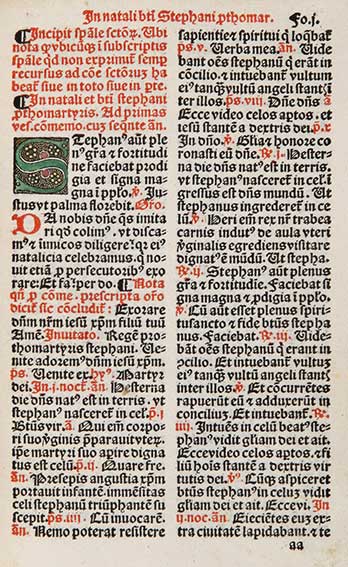 In natali bti Stephani ꝓthomar.
Fo.j.
¶Incipit spāle sctoꝝ. Ubi
nota ꝙ vbicūqꝫ i subscriptis
spāle qd non exprimit̄ semp̄
recursus ad cōe sctōrus ha
beat̄ siue in toto siue in ꝑte.
¶In natali et bti stephani
ꝓthomartyris. Ad primas
ves. cōmemo. cuꝫ seqn̄te an̄.
Stephan⁹ aūt ple
n⁹ gr̄a ⁊ fortitudi
ne faciebat prodi
gia et signa mag
na i pplo. v̄. Ju
stus vt palma florebit. Oro.
Da nobis dn̄e qs imita
ri qd colim⁹. vt discam
⁹ ⁊ inimicos diligere: qr ei⁹
natalicia celebramus. q no
uit etiā ꝓ persecutorib⁹ exo
rare: Et fa. per do. ¶Nota
qn̄ ꝓ cōme. prescripta oro
dicit̄ sic cōcludit̄: Exorare
dūm nr̄m iesū xp̄m filiū tuū
Amē. Inuitato. Regē pro=
thomartyris stephani. Ue
nite adorem⁹ dn̄m iesū xp̄m.
ps. Uenite ex. hy⁹. Martyr
dei. In .j. noct. an̄. Hesterna
die dn̄s nat⁹ est in terris. vt
stephan⁹ nasceret̄ in cel. p̄.j
Btūs vir. a. Qui em̄ corpo=
ri suo ꝟginis p̄parauit vteꝝ.
ip̄e martyri suo aꝑire digna
tus est celū. p̄.ij. Quare fre.
an̄. Presepis angustia xp̄m
portauit infantē. immēsitas
celi stephanū triūphantē su
scepit. p̄s.iiij. Cū inuocarē.
an̄. Nemo poterat resistere
sapientie ⁊ spiritui q loqb̄at̄
p̄s.v. Uerba mea. an̄. Uide
bāt oēs stephanū q erāt in
cōcilio. ⁊ intuebant̄ vultum
ei⁹ tanqꝫ vultū angeli stantis
inter illos. p̄s.viij. Dn̄e dn̄s a
Ecce video celos aꝑtos. et
iesū stantē a dextris dei. p̄.x
In dn̄o. v̄. Glia ⁊ honore co
ronasti eū dn̄e. ℞.j. Hester=
na die dn̄s nat⁹ est in terris.
vt stephan⁹ nasceret̄ in cel.
īgressus est dn̄s mundū. Ut
stephanus ingrederet̄ in ce
lū. v̄. Peri em̄ rex nr̄ trabea
carnis indut⁹ de aula vteri
ꝟginalis egrediens visitare
dignat⁹ ē mūdū. Ut stepha.
℞.ij. Stephan⁹ aut plenus
gr̄a ⁊ fortitudīe. Faciebat si
gna magna ⁊ ꝓdigia i pplo.
v̄. Cū aūt esset plenus spiri=
tusancto ⁊ fide btūs stepha
nus. Faciebat. ℞.iij. Uide=
bant oēs stephanū q erant in
ꝯcilio. Et intuebant̄ vultum
ei⁹ tanqꝫ vultū angeli stantis
inter illos. v̄. Et cōcurrētes
rapuerūt eū ⁊ adduxerūt in
concilius. Et intuebant̄. ℞.
iiij. Intuēs in celū beat⁹ ste=
phan⁹ vidit gliam dei et ait.
Ecce video celos aptos. ⁊ fi
liū hoīs stantē a dextris vir=
tutis dei. v̄. Cūqꝫ aspiceret
btūs stephan⁹ in celuꝫ vidit
gliam dei et ait. Ecce vi. In
ij. noc. an̄. Eiecētes euꝫ ex=
tra ciuitatē lapidabant. ⁊ te
aa